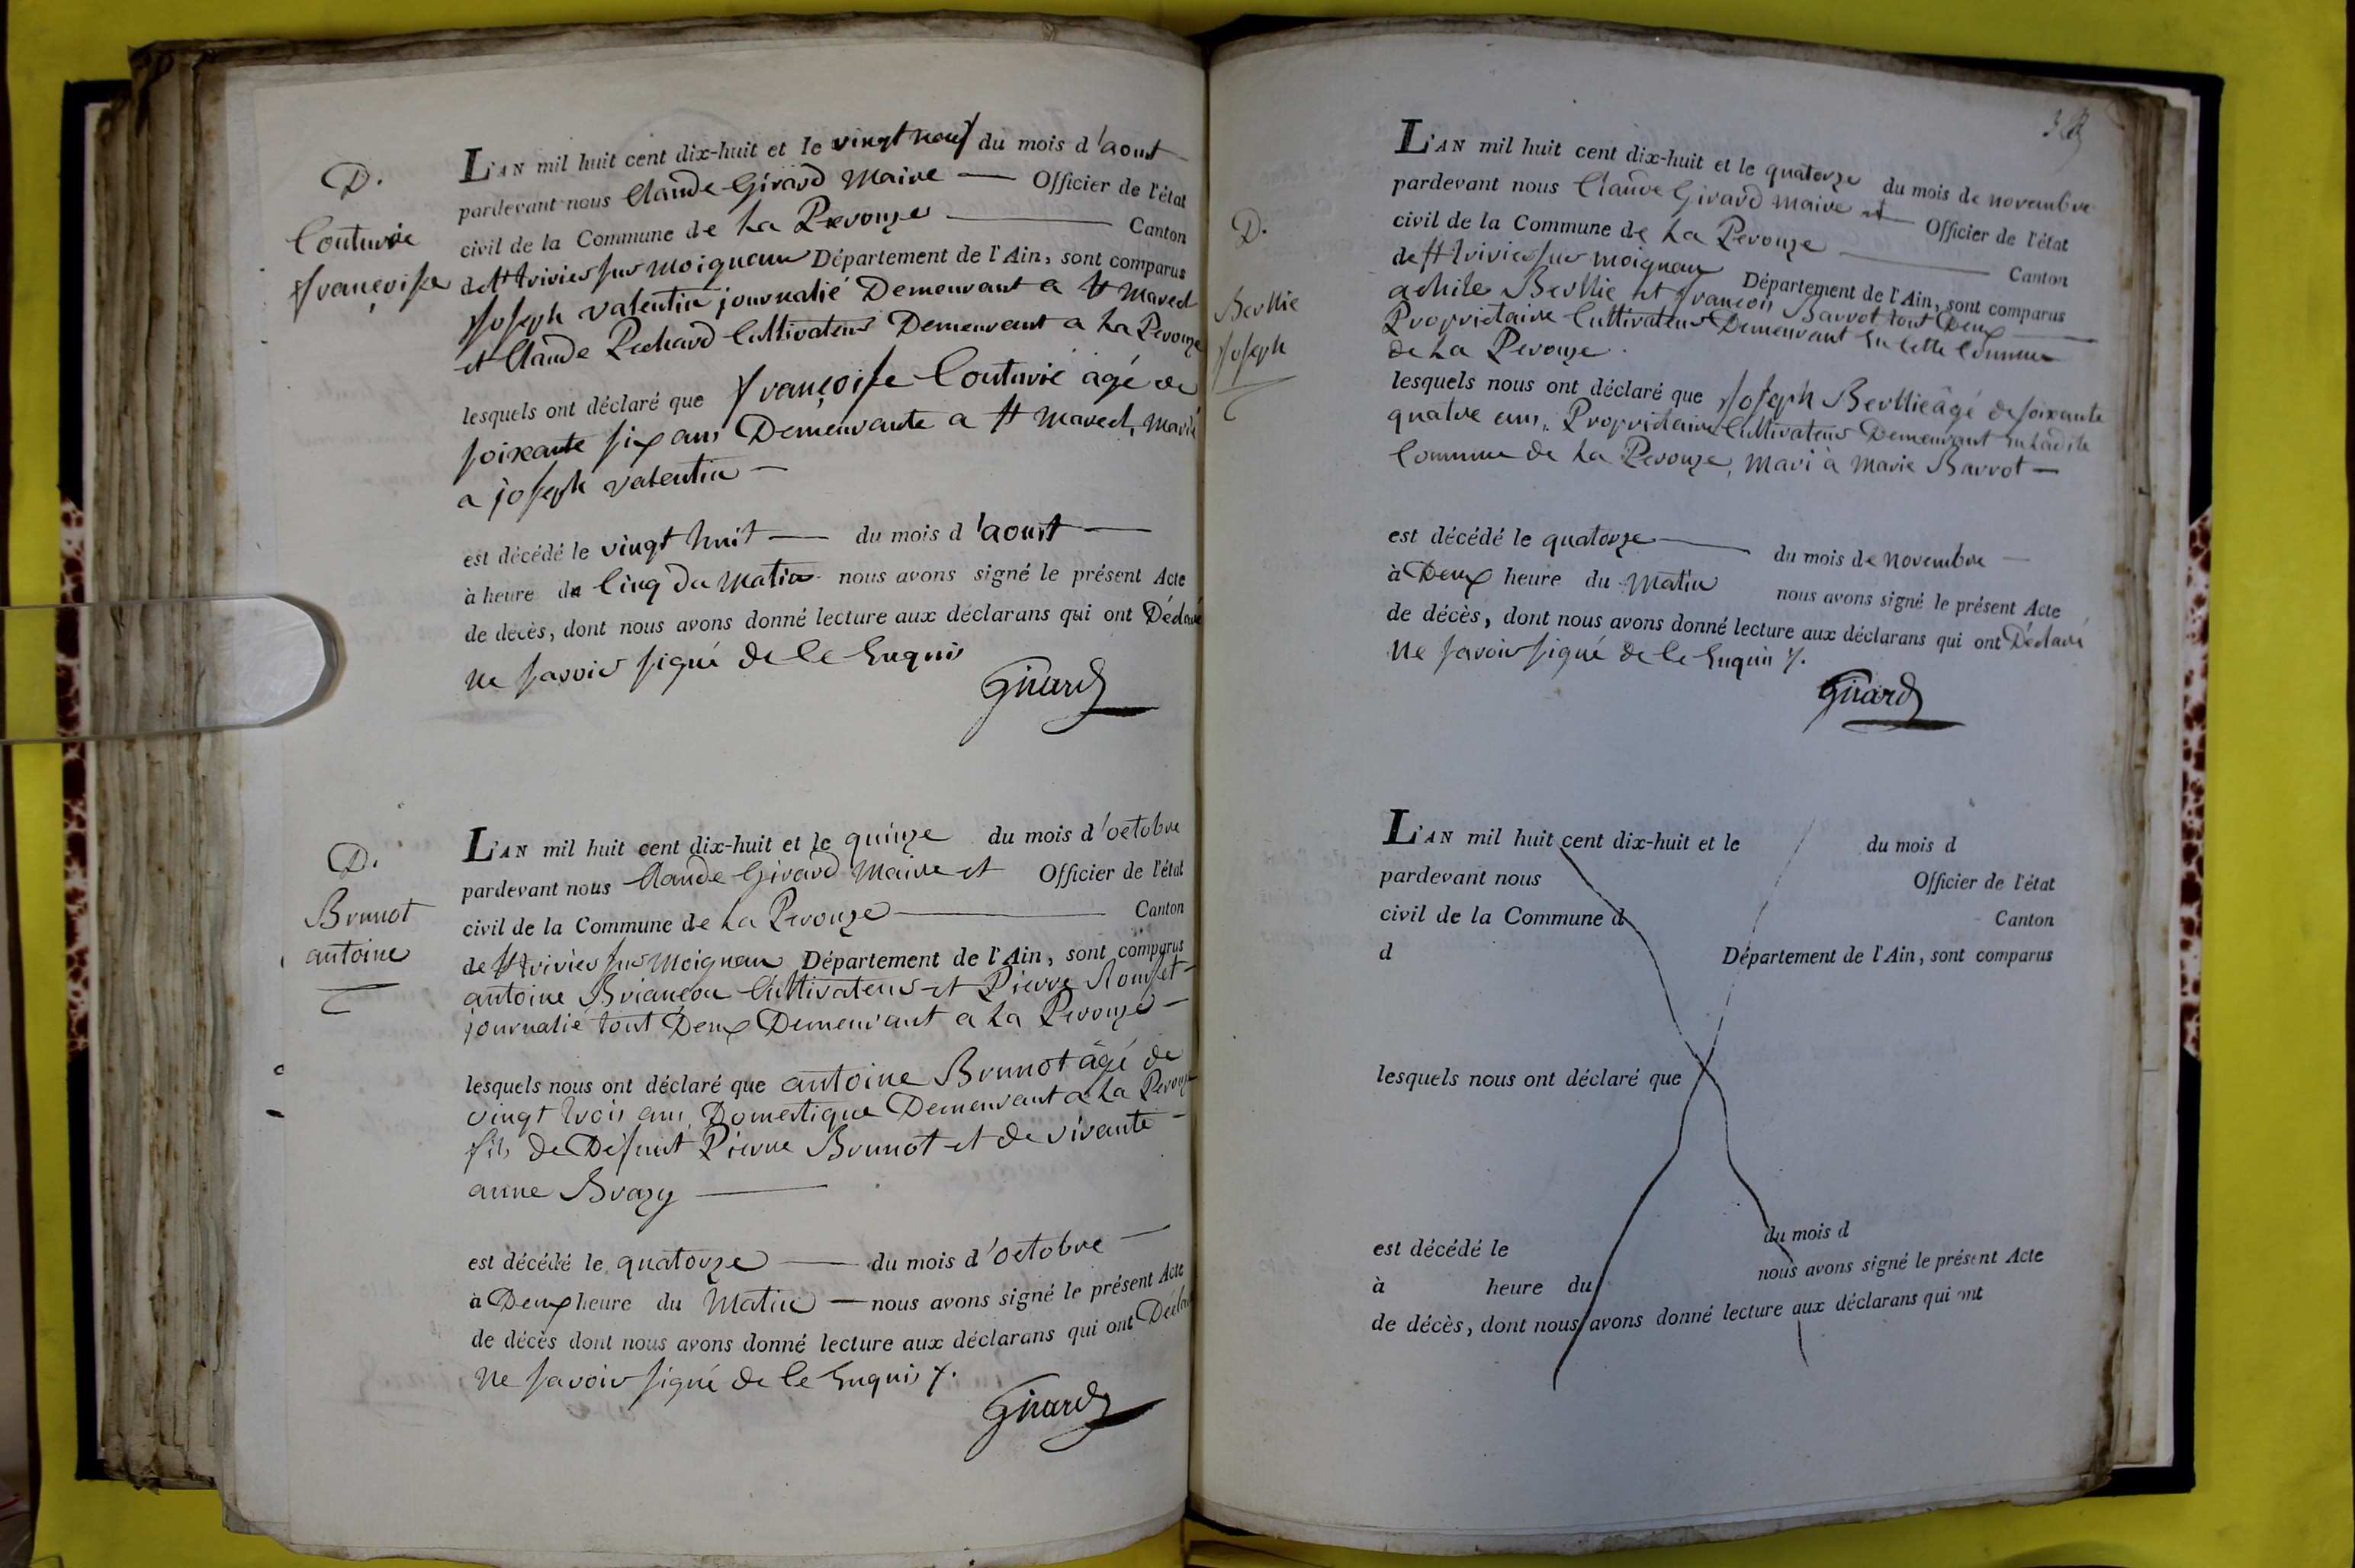 D.
Couturie
françoise
L'AN mil huit cent dix-huit et le vingt neuf du mois d'aoust
pardevant nous Claude Girard Maire — Officier de l'état
civil de la Commune de La Perouze — Canton
de St trivier sur Moignan Département de l'Ain, sont comparus
Joseph Valentin journalié Demeurant a St Marcel
et Claude Pechard Cultivateur Demeurant a La Perouze
lesquels ont déclaré que françoise Couturié agé de
soixante six ans Demeurante a St Marcel, Marié
a joseph Valentin —
est décédé le vingt huit — du mois d'aoust —
à heure de Cinq du Matin nous avons signé le présent Acte
de décès, dont nous avons donné lecture aux déclarans qui ont Déclaré
ne savoir signé de Ce Enquis
Girard
D.
Brunot
antoine
L'AN mil huit cent dix-huit et le quinze du mois d'octobre
pardevant nous Claude Girard Maire et Officier de l'état
civil de la Commune de La Perouze — Canton
de St trivier sur Moignan Département de l'Ain, sont comparus
antoine Briancon Cultivateur et Pierre
journalié tout Deux Demeurant a La Perouze —
lesquels nous ont déclaré que antoine Brunot âgé de
vingt trois ans, Domestique Demeurant a La Perouze
fils de Défunt Pierre Brunot et de vivante —
anne Brazy —
est décédé le quatorze — du mois d'octobre —
à Deux heure du Matin — nous avons signé le présent Acte
de décès dont nous avons donné lecture aux déclarans qui ont Déclaré
ne savoir signé de Ce Enquis %.
Girard
D.
Berllie
Joseph
L'AN mil huit cent dix-huit et le quatorze du mois de novembre
pardevant nous Claude Girard Maire et — Officier de l'état
civil de la Commune de La Perouze — Canton
de St trivier sur Moignan Département de l'Ain, sont comparus
achile Berllie et françois Barrot tout Deux
Proprietaire Cultivateur Demeurant En Cette Commune
de La Perouze.
lesquels nous ont déclaré que Joseph Berllie âgé de soixante
quatre ans, Proprietaire Cultivateur Demeurant en Ladite
Commune de La Perouze, Mari à Marie Barrot —
est décédé le quatorze — du mois de novembre —
à Deux heure du Matin nous avons signé le présent Acte
de décès, dont nous avons donné lecture aux déclarans qui ont Déclaré
ne savoir signé de Ce Enquis %.
Girard
L'AN mil huit cent dix-huit et le du mois d
pardevant nous Officier de l'état
civil de la Commune d Canton
d Département de l'Ain, sont comparus
lesquels nous ont déclaré que
est décédé le du mois d
à heure du nous avons signé le présent Acte
de décès, dont nous avons donné lecture aux déclarans qui ont